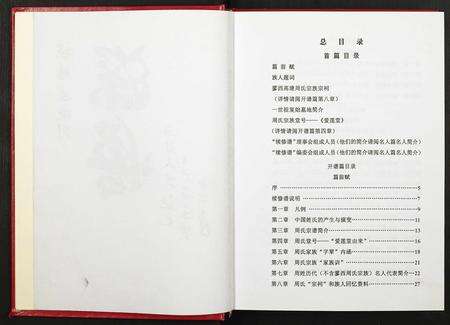 总 目 录
首 篇 目 录
篇 前 赋
族人题词
蒙西高塘周氏宗族宗祠
(详情请阅开谱篇第八章)
一世祖复始墓地简介
周氏宗族堂号——《爱莲堂》
(详情请阅开谱篇第四章)
“续修谱”理事会组成人员(他们的简介请阅名人篇名人简介)
“续修谱”编委会组成人员(他们的简介请阅名人篇名人简介)
开谱篇目录
篇前赋
序 5
续修谱说明 7
第一章 凡例 9
第二章 中国姓氏的产生与演变 11
第三章 周氏宗谱简介 13
第四章 周氏堂号——“爱莲堂由来” 16
第五章 周氏家族“字辈”内涵 19
第六章 周氏宗族“家族训” 21
第七章 周姓历代(不含蒙西周氏宗族)名人代表简介 22
第八章 周氏“宗祠”和族人回忆资料 27